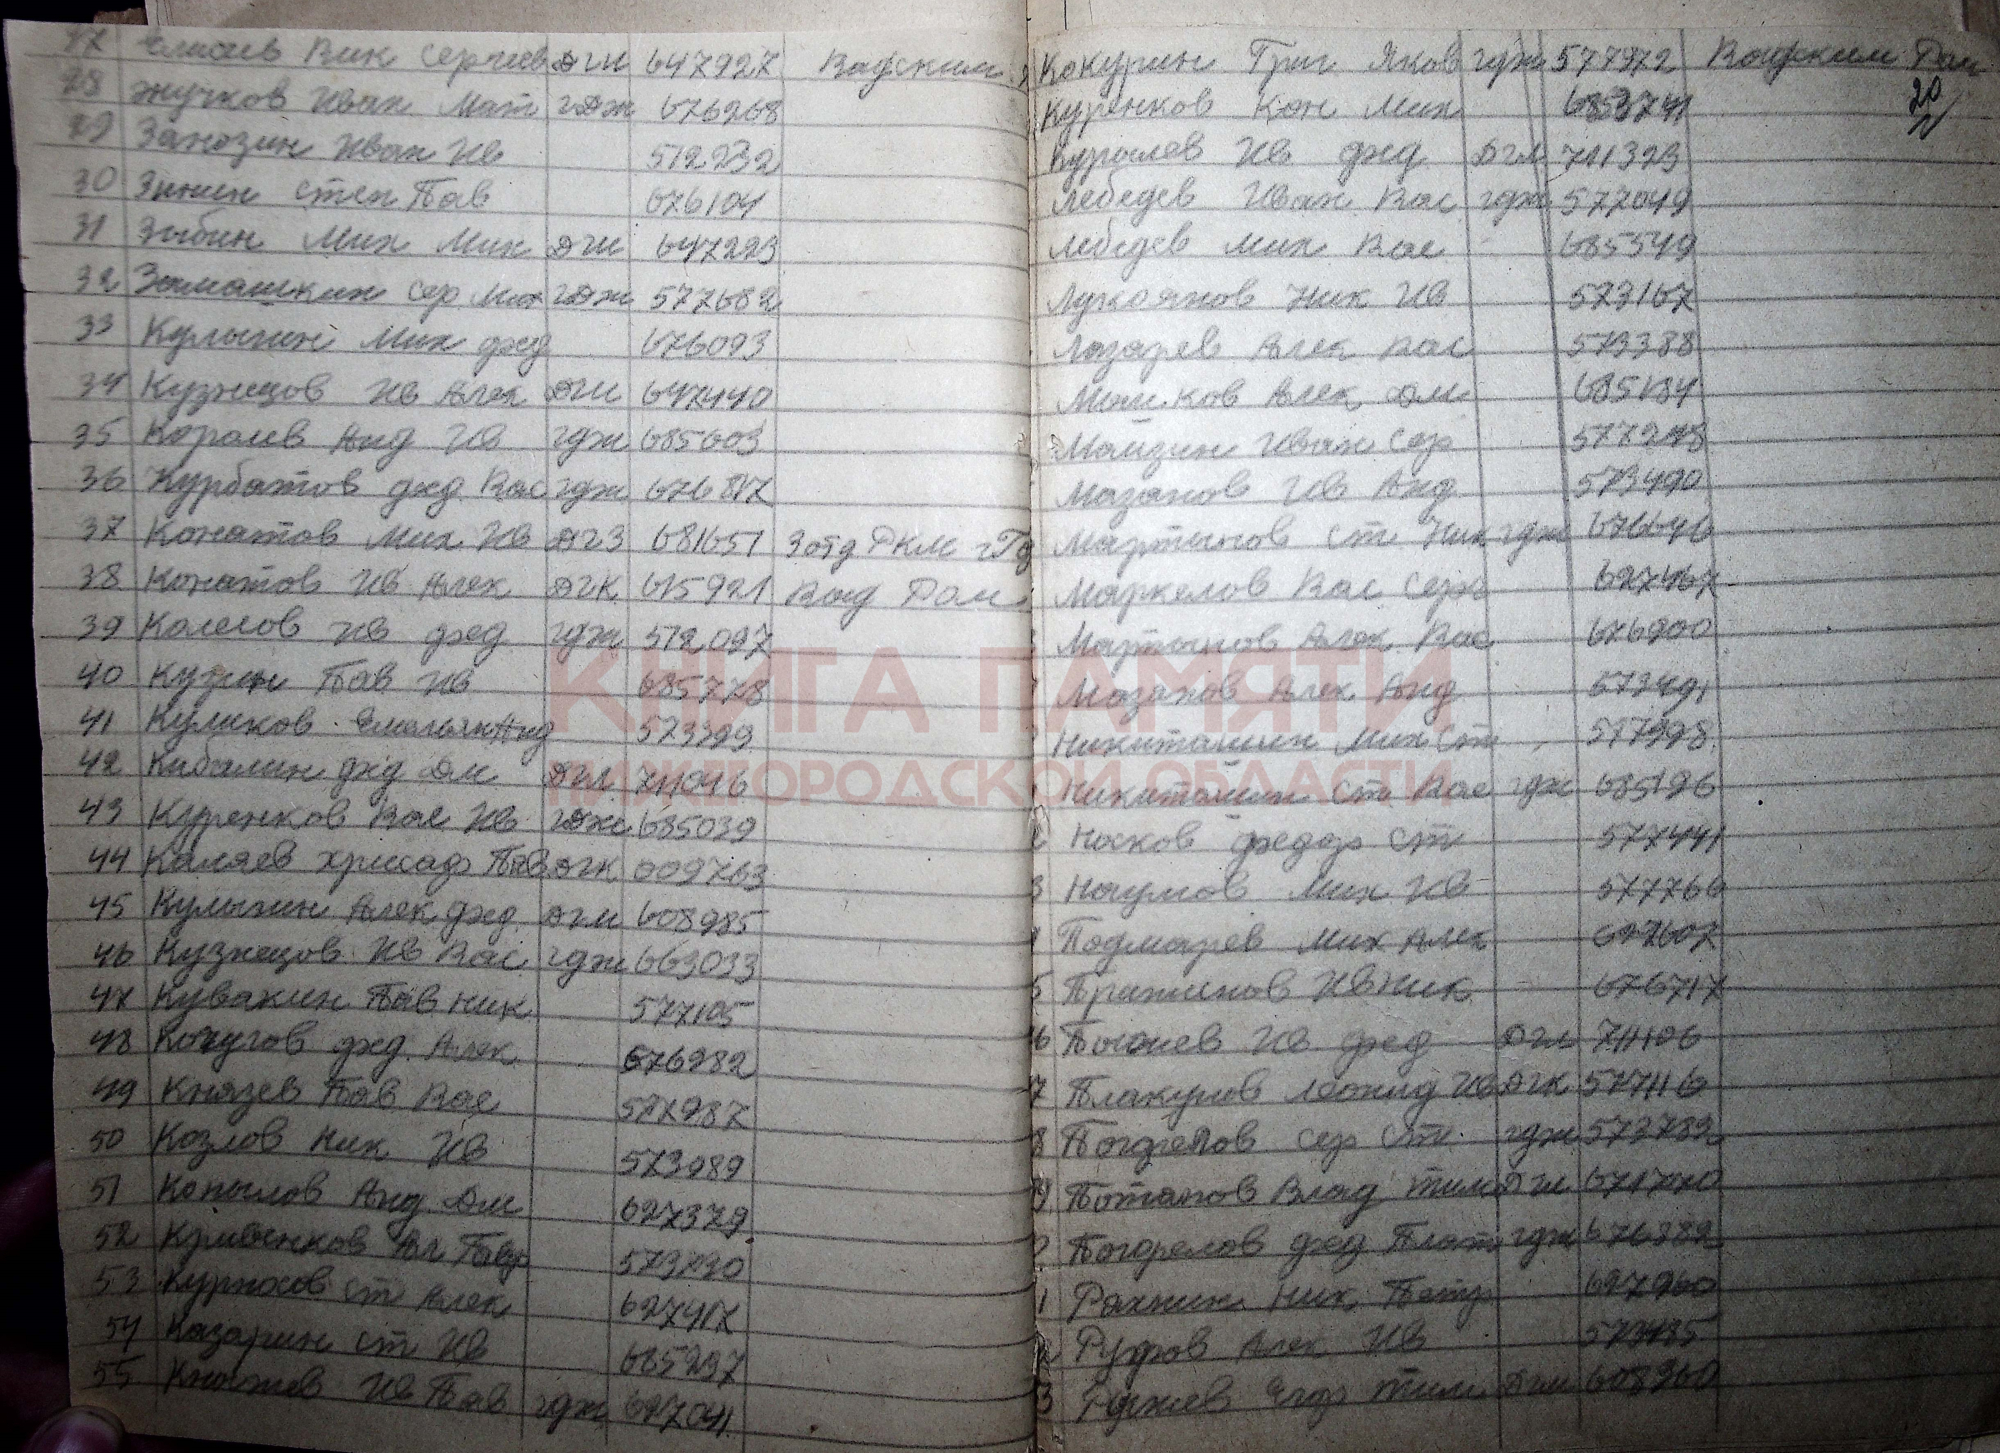 27 Елисиев Вик Сергеев ДГИ 647927 Вадским
28 Жучков Иван Мат гдж 676268
29 Занозин Иван Ив 512232
30 Зинин Степ Пав 676104
31 Зыбин Мих Мих ДГИ 647223
32 Замашкин Сер Мих гдж 577682
33 Кулыгин Мих фед 676093
34 Кузнецов Ив Алек ДГИ 647440
35 Королев Анд Ив гдж 685603
36 Курбатов фед Вас гдж
37 Конатов Мих Ив ДГЗ 681651 3 отд РКМ
38 Конатов Ив Алек ДГК 615921 Вад Рай
39 Колесов Ив фед гдж 512097
40 Кузин Пав Ив 685778
41 Куликов Емельян Анд 573399
42 Кибалин фед Дм ДГМ 711046
43 Куренков Вас Ив гдж 685039
44 Каляев Пав ДГК 009763
45 Кулыгин Алек фед ДГМ 608985
46 Кузнецов Ив Вас гдж 663033
47 Кувакин Пав Ник 577105
48 фед. Алек 676982
49 Князев Пав Вас 577987
50 Козлов Ник Ив 573989
51 Копылов Анд Дм 627379
52
53 Курносов Ст Алек 627417
54 Казарин Ст Ив 685297
55 Ив Пав гдж 627041
Кокурин Григ Яков гдж 577972 Вадским Рай
20
Куренков Кон Мих 685741
Ив фед ДГМ 711323
Лебедев Иван Вас гдж 577049
Лебедев Мих Вас 685549
Лукоянов Ник Ив 573167
Лазарев Алек Вас 573388
Алек Дм 685184
Иван Сер 577278
Мазанов Ив Анд 573490
Мартынов Ст Ник гдж 676646
Маркелов Вас Серг 627467
Мартынов Алек Вас 676900
Мазанов Алек Анд 573491
Никиташин Мих Ст 577998
Никиташин Ст Вас гдж 685196
Носков Федор Ст 577441
Наумов Мих Ив 577766
Подмарев Мих Алек 627607
Ив Ник 676717
Ив фед ДГМ 711106
Плакунов Леонид Ив ДГК 577116
Погорелов Сер Ст гдж 573789
Потапов Влад Тим ДГМ
Погорелов фед Плат гдж 676389
Ник Петр 627960
Алек Ив 573485
Егор Тим ДГМ 608960
КНИГА ПАМЯТИ
НИЖЕГОРОДСКОЙ ОБЛАСТИ